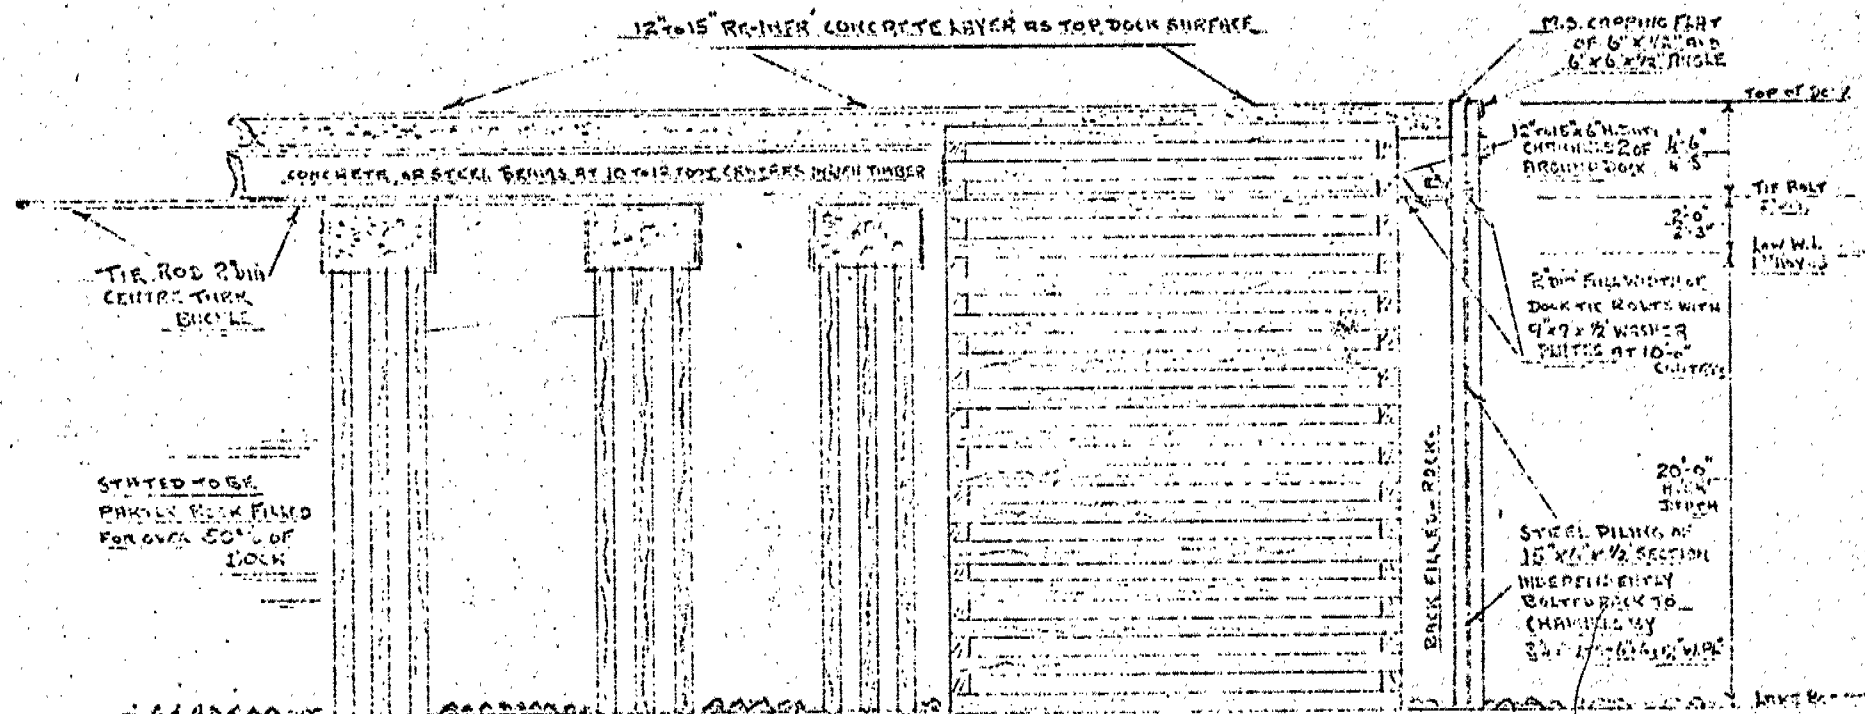 12" to 15" RE-INFR' CONCRETE LAYER AS TOP DOCK SURFACE
M.S. CAPPING FLAT
OF 6" X 1/2" AND
6" X 6" X 1/2" ANGLE
TOP OF
12" to 15" X 6"
CHANNELS 2 OF
AROUND DOCK
4'-6"
4'-3"
CONCRETE OR STEEL BEAMS AT 10 TO 12 FOOT CENTERS TIMBER
TIE BOLT
2'-0"
2'-3"
LOW W.L.
TIE ROD 2" DIA
CENTRE TURN
BUCKLE
2" DIA FULL WIDTH OF
DOCK TIE BOLTS WITH
9" X 9" X 1/2" WASHER
PLATES AT 10'-0"
CENTERS
STATED TO BE
PARTLY ROCK FILLED
FOR OVER 50% OF
DOCK
BACK FILLED-ROCK
20'-0"
STEEL PILING OF
15" X 1/2" SECTION
INDEPENDENTLY
BOLTED BACK TO
CHANNELS BY
LAKE